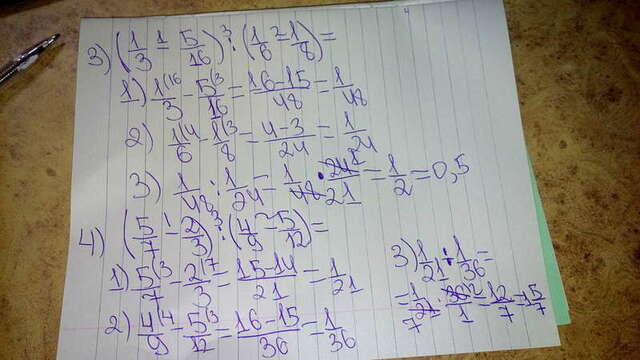 3) (1/3 - 5/16) : (1/6 - 1/8) =
1) 1/3 - 5/16 = 16-15/48 = 1/48
2) 1/6 - 1/8 = 4-3/24 = 1/24
3) 1/48 : 1/24 = 1/48 · 24/21 = 1/2 = 0,5
4) (5/7 - 2/3) : (4/9 - 5/12) =
1) 5/7 - 2/3 = 15-14/21 = 1/21
2) 4/9 - 5/12 = 16-15/36 = 1/36
3) 1/21 : 1/36 =
= 1/21 · 36/1 = 12/7 = 1 5/7